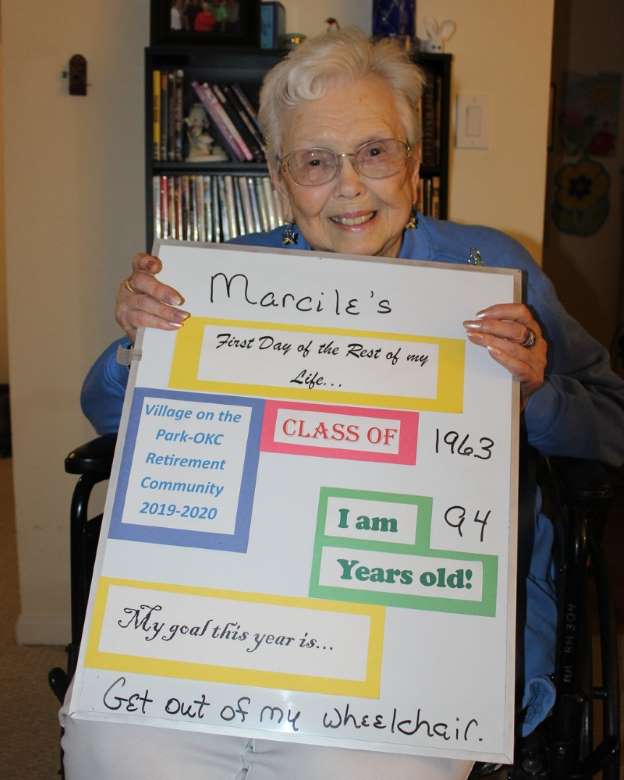 Marcile's
First Day of the Rest of my
Life...
Village on the
Park-OKC
Retirement
Community
2019-2020
CLASS OF 1963
I am 94
Years old!
My goal this year is...
Get out of my wheelchair.
RM 304